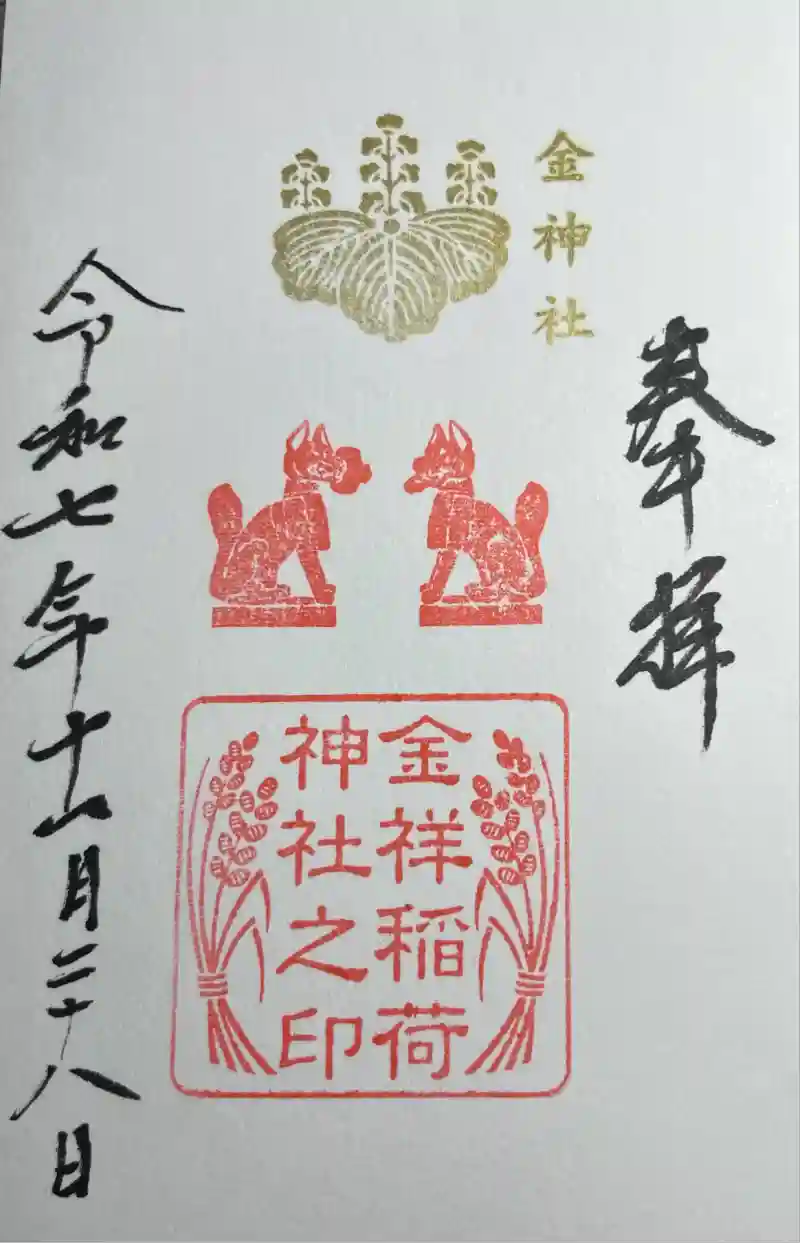 奉拝
金神社
金祥稲荷
神社之印
令和七年十一月二十八日